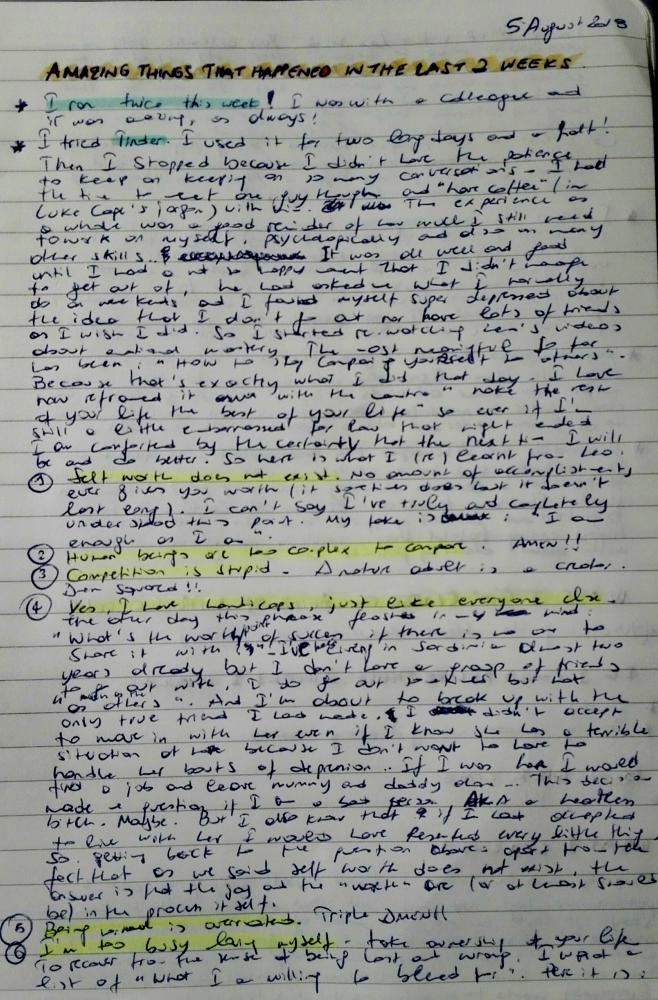 5 August 2018
AMAZING THINGS THAT HAPPENED IN THE LAST 2 WEEKS
* I ran twice this week! I was with a colleague and
it was amazing, as always!
* I tried Tinder. I used it for two long days and a half!
Then I stopped because I didn't have the patience
to keep on keeping on so many conversations - I had
the time to meet one guy though and "have coffee" (in
Luke Cage's jargon) with him. The experience as
a whole was a good reminder of how much I still need
to work on myself, psychologically and also on many
other skills. It was all well and good
until I had a not so happy moment that I didn't manage
to get out of, he had asked me what I normally
do on weekends and I found myself super depressed about
the idea that I don't go out nor have lots of friends
as I wish I did. So I started re-watching Leo's videos
about emotional mastery. The most meaningful so far
has been: "How to stop comparing yourself to others".
Because that's exactly what I did that day. I have
now reframed it with the mantra "make the rest
of your life the best of your life" so even if I'm
still a little embarrassed for how that night ended
I am comforted by the certainty that the next time I will
be and do better. So here is what I (re)learnt from Leo:
① Self worth does not exist. No amount of accomplishments
ever gives you worth (it sometimes does but it doesn't
last long). I can't say I've truly and completely
understood this part. My take is: "I am
enough as I am".
② Human beings are too complex to compare. AMEN!!
③ Competition is stupid - A mature adult is a creator.
Damn squared!!
④ Yes, I have handicaps, just like everyone else.
the other day this phrase flashed in my mind:
"What's the point of success if there is no one to
share it with?" - I've been living in Sardinia almost two
years already but I don't have a group of friends
to go out with, I do go out sometimes but not
"as others". And I'm about to break up with the
only true friend I had made. I didn't accept
to move in with her even if I know she has a terrible
situation at home because I don't want to have to
handle her bouts of depression.. If I was her I would
find a job and leave mummy and daddy alone... This decision
made me question if I am a bad person AKA a heartless
bitch. Maybe. But I also know that if I had accepted
to live with her I would have resented every little thing.
So getting back to the question above: apart from the
fact that as we said self worth does not exist, the
answer is that the joy and the "worth" are (or at least should
be) in the process itself.
⑤ Being normal is overrated. Triple Damn!!
⑥ I'm too busy loving myself - take ownership of your life
To recover from the sense of being lost and wrong, I wrote a
list of "What I am willing to bleed for". Here it is: